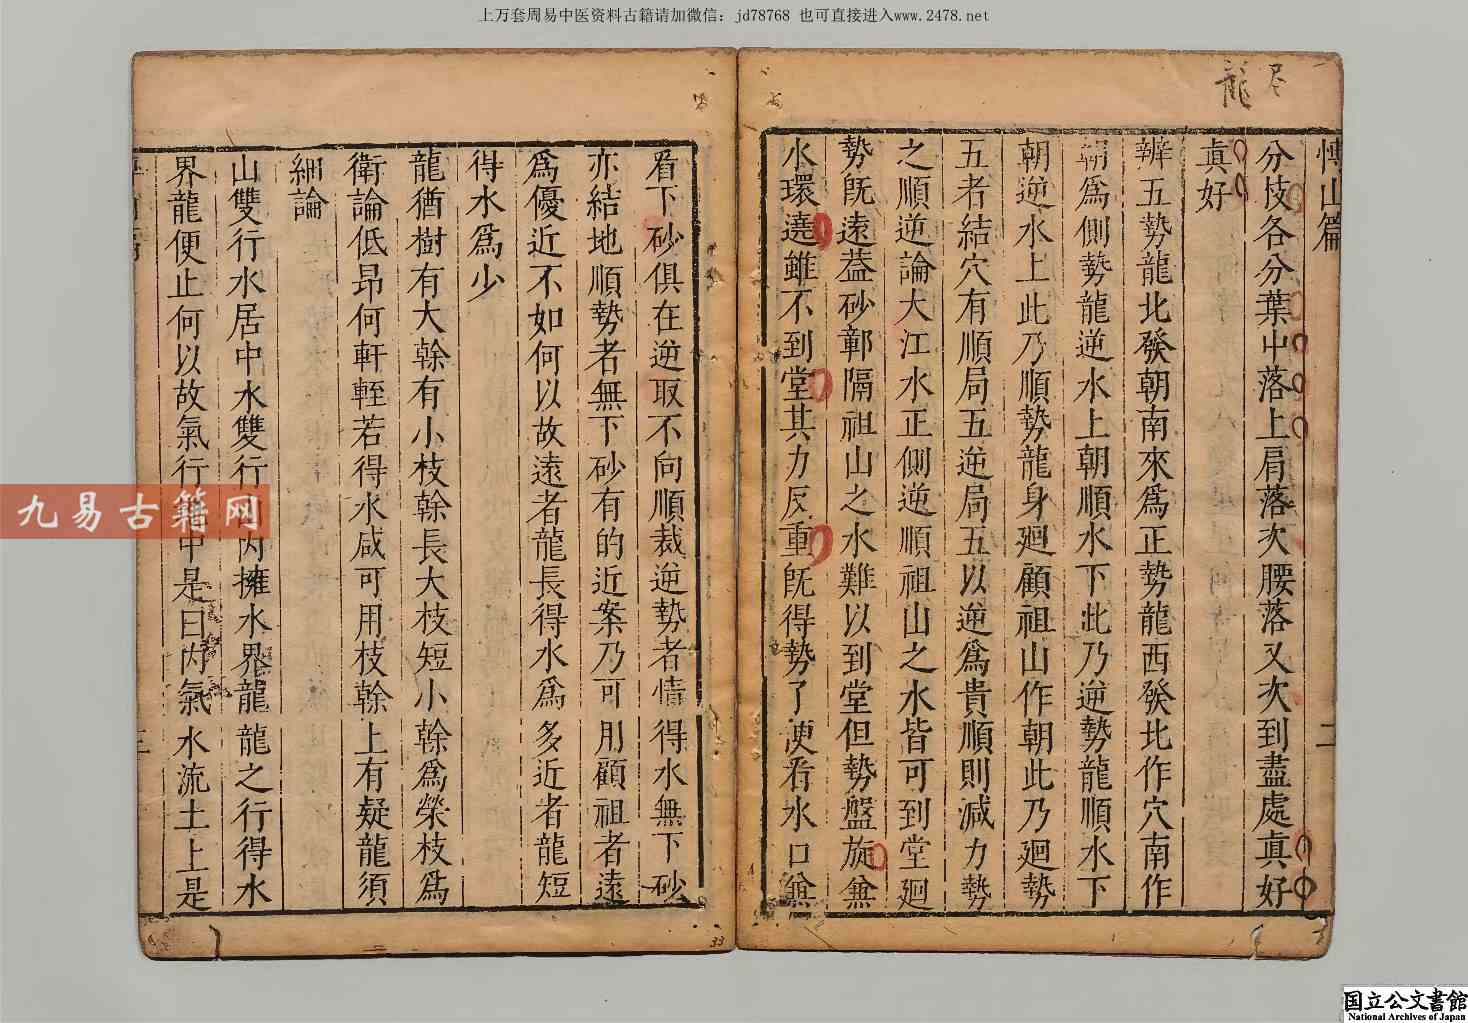 上万套周易中医资料古籍请加微信：jd78768 也可直接进入www.2478.net
龍
山篇
二
分枝各分葉中落上肩落次腰落又次到盡處真好
真好
辨五勢龍北發朝南來爲正勢龍西發北作穴南作
朝爲側勢龍逆水上朝順水下此乃逆勢龍順水下
朝逆水上此乃順勢龍身廻顧祖山作朝此乃廻勢
五者結穴有順局五逆局五以逆爲貴順則減力勢
之順逆論大江水正側逆順祖山之水皆可到堂廻
勢旣遠葢砂鄣隔祖山之水難以到堂但勢盤旋兼
水環遶雖不到堂其力反重旣得勢了便看水口兼
看下砂俱在逆取不向順裁逆勢者情得水無下砂
亦結地順勢者無下砂有的近案乃可用顧祖者遠
爲優近不如何以故遠者龍長得水爲多近者龍短
得水爲少
龍猶樹有大榦有小枝榦長大枝短小榦爲榮枝爲
衛論低昂何軒輊若得水咸可用枝榦上有疑龍須
細論
山雙行水居中水雙行山內擁水界龍龍之行得水
界龍便止何以故氣行中是曰內氣水流土上是
三
33
九易古籍网
国立公文書館
National Archives of Japan